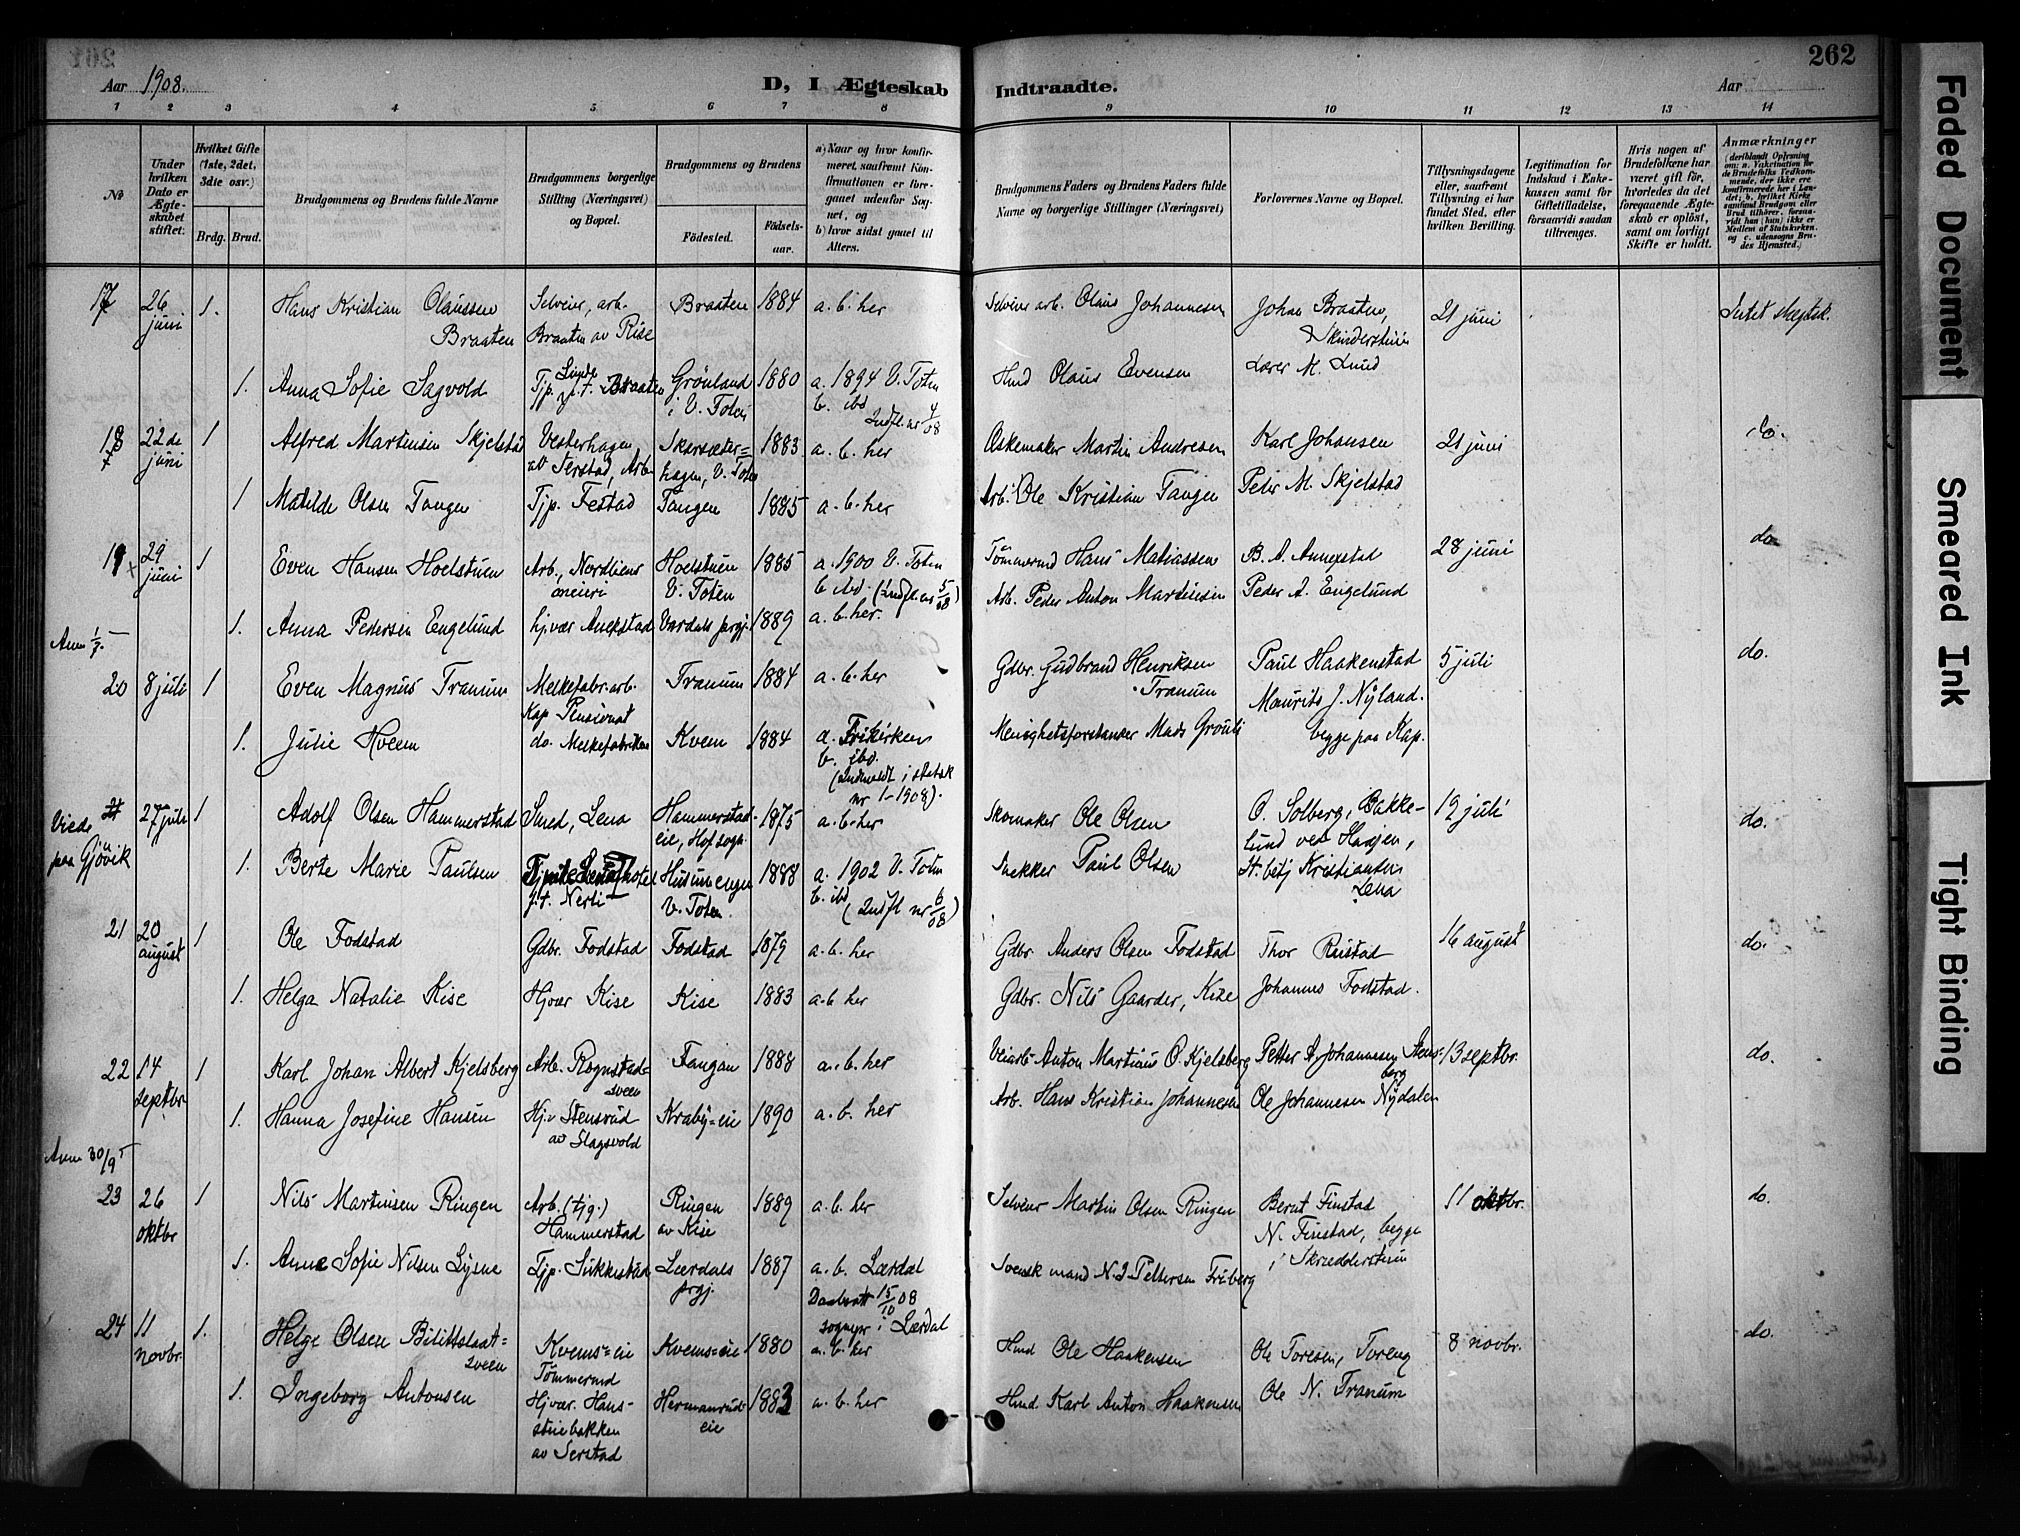 262
Aar 1908.
D, I Ægteskab Indtraadte.
Aar
1 2 3 4 5 6 7 8 9 10 11 12 13 14
No
Under hvilken Dato er Ægteskabet stiftet.
Hvilket Gifte (1ste, 2det, 3die osv.)
Brdg. Brud.
Brudgommens og Brudens fulde Navne
Brudgommens borgerlige Stilling (Næringsvei) og Bopæl.
Brudgommens og Brudens
Födested. Födselsaar.
a) Naar og hvor konfirmeret, saafremt Konfirmationen er foregaaet udenfor Sognet, og
b) hvor sidst gaaet til Alters.
Brudgommens Faders og Brudens Faders fulde Navne og borgerlige Stillinger (Næringsvei)
Forlovernes Navne og Bopæl.
Tillysningsdagene eller, saafremt Tillysning ei har fundet Sted, efter hvilken Bevilling.
Legitimation for Indskud i Enkekassen samt for Giftetilladelse, forsaavidt saadan tiltrænges.
Hvis nogen af Brudefolkene har været gift för, hvorledes da det foregaaende Ægteskab er oplöst, samt om lovligt Skifte er holdt.
Anmærkninger
(deriblandt Oplysning om: a. Vakcination for de Brudefolks Vedkommende, der ikke ere konfirmerede her i Landet; b. hvilket Kirkesamfund Brudgom eller Brud tilhörer, forsaavidt han (hun) ikke er Medlem af Statskirken, og c. udensogns Brudes Hjemsted.)
17 26 juni 1. Hans Kristian Olaussen Braaten Selveier, arb. Braaten av Rise Braaten 1884 a. b. her Selveier arb. Olaus Johannesen Johan Braaten, Skinderstuen 21 juni Intet slægtsk.
1. Anna Sofie Sagvold Tjp. Linde Braaten Grönland i V. Toten 1880 a. 1894 V. Toten b. ibd Indfl. nr 4/08 Hmd Olaus Evensen Lærer M. Lund
18 22de juni 1 Alfred Martinsen Skjelstad Vesterhagen av Serstad, Arb. Skarsæterhagen, V. Toten 1883 a. b. her Oskemaker Martin Andresen Karl Johansen 21 juni do.
1 Matilde Olsen Tangen Tjp. Festad Tangen 1885 a. b. her Arb. Ole Kristian Tangen Peder M. Skjelstad
19 29 juni 1 Even Hansen Hoelstuen Arb., Nordlien Hoelstuen V. Toten 1885 a. 1900 V. Toten b. ibd. (Indfl. nr 5/08) Tömmermd Hans Matiassen B. A. Annexstad 28 juni do
1. Anna Pedersen Engelund hjvær Anexstad Vardals prgj. 1889 a. b. her. Arb. Peder Anton Martinsen Peder A. Engelund
Anm 1/7
20 8 juli 1 Even Magnus Tranum Melkefabr. arb. Kap Pensionat Tranum 1884 a. b. her Gdbr. Gudbrand Henriksen Tranum Paul Haakenstad 5 juli do.
1. Julie Hveem do. Melkefabriken Kvem 1884 a. Frikirken b. ibd. (Indmeldt i statsk nr 1-1908). Menighetsforstander Mads Grönli Maurits J. Nyland. begge paa Kap.
Viede paa Gjövik 27 juli 1 Adolf Olsen Hammerstad Smed, Lena Hammerstadeie, Hof sogn 1875 a. b. her Skomaker Ole Olsen O. Solberg, Bakkelund ved Haajen, 19 juli do.
1. Berte Marie Paulsen Husumengen V. Toten. 1888 a. 1902 V. Toten b. ibd (Indfl nr 6/08) Snekker Paul Olsen St. betj Kristiansen Lena
21 20 august 1 Ole Fodstad Gdbr. Fodstad Fodstad 1879 a. b. her Gdbr. Anders Olsen Fodstad Thor Reistad 16 august do.
1. Helga Natalie Kise Hjvær Kise Kise 1883 a. b her Gdbr. Nils Gaarder, Kise Johannes Fodstad.
22 14 septbr. 1 Karl Johan Albert Kjelsberg Arb. Rognstadsveen Fangan 1888 a. b. her Veiarb. Anton Martinus O. Kjelsberg Petter A. Johannesen Stensberg 13 septbr. do.
1. Hanna Josefine Hansen Hj. v Stensrud av Slagsvold Kraby=eie 1890 a. b. her Arb. Hans Kristian Johannesen Ole Johannesen Nydalen
Anm 30/9
23 26 oktbr 1 Nils Martinsen Ringen Arb. (tjg.) Hammerstad Ringen av Kise 1889 a. b. her Selveier Martin Olsen Ringen Bernt Finstad 11 oktbr. do.
1. Anne Sofie Nilsen Lysne Tjp. Sukkestad Lærdals prgj. 1887 a. b. Lærdal Daabsatt 15/10 08 sognepr i Lærdal Svensk mand N. J. Pettersen Friberg N. Finstad, begge i Skrædderstuen
24 11 novbr. 1. Helge Olsen Bilittslaatsveen Kvems=eie Tömmermd Kvems=eie 1880 a. b. her Hmd Ole Haakensen Ole Toresen, Toreng 8 novbr. do.
1. Ingeborg Antonsen Hjvær. Hansstuebakken av Serstad Hermanrud-eie 1883 a. b. her Hmd Karl Anton Haakensen Ole N. Tranum
Faded Document
Smeared Ink
Tight Binding